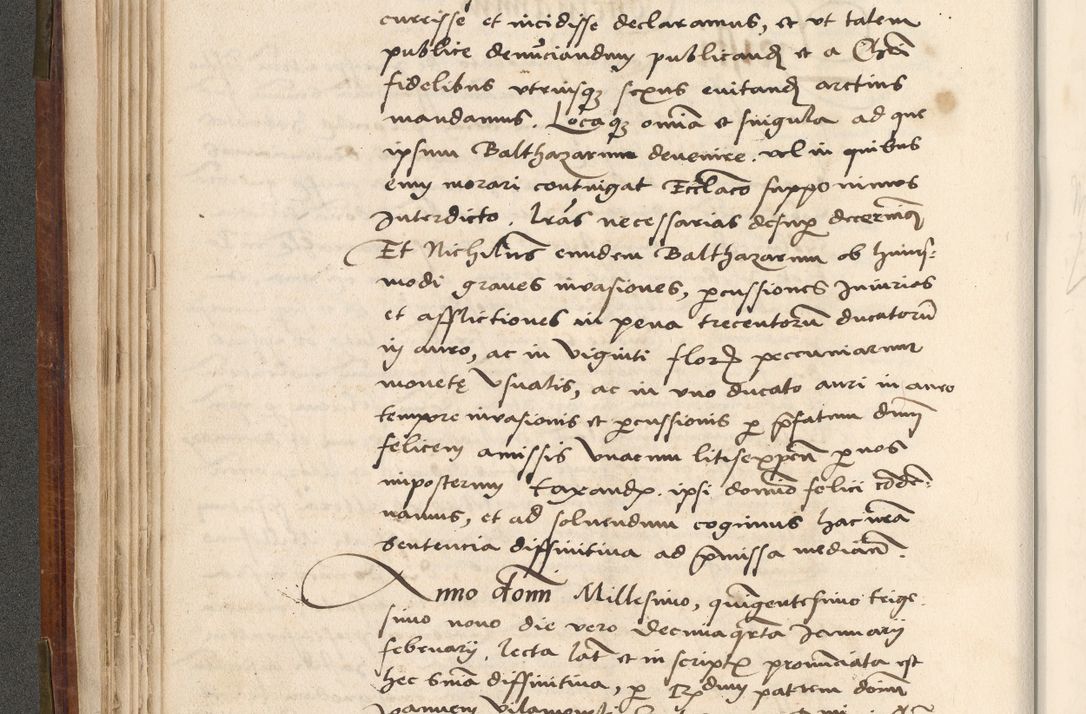 currisse et incidisse declaramus, et ut talem
publice denunciandum publicand et a Chri
fidelibus utriusq sexus evitand arctius
mandamus. Locaq omnia et singula ad que
ipsum Balthazarum devenire. vel in quibus
eum morari contingat Eccliaco supponimus
Interdicto. lras necessarias desup decernimq
Et Nichilus eundem Balthazarum ob huius-
modi graves invasiones, pcussiones Iniurias
et afflictiones in pena trecentoru ducatoru
in auro, ac in viginti flor peccuniarum
monetę Usualis, ac in uno ducato auri in auro
tempore invasionis et pcussionis p pfatum dnm
felicem amissis Unacum litisexpen p nos
imposterum taxand. ipsi domino felici conde-
namus, et ad solvendum cogimus hac nra
Sentencia diffinitiva ad pmissa median.
Anno domi Millesimo, quigentesimo trige
simo nono die vero Decimaqrta Ianuarii
februarii, lecta lat et in script pronunciata est
hec snia diffinitiva, p Rdum patrem domi